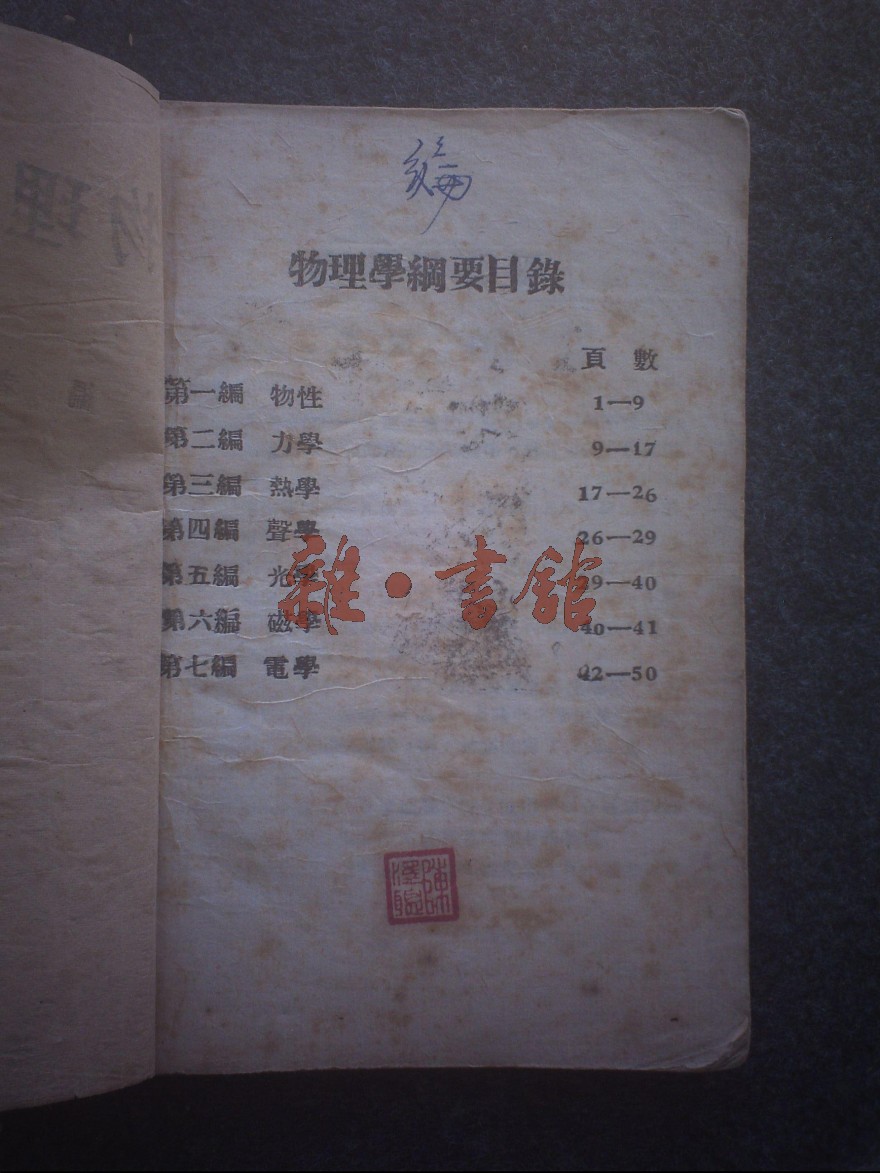 物理學綱要目錄
頁 數
第一編 物性 1—9
第二編 力學 9—17
第三編 熱學 17—26
第四編 聲學 26—29
第五編 光學 29—40
第六編 磁學 40—41
第七編 電學 42—50
雜·書館